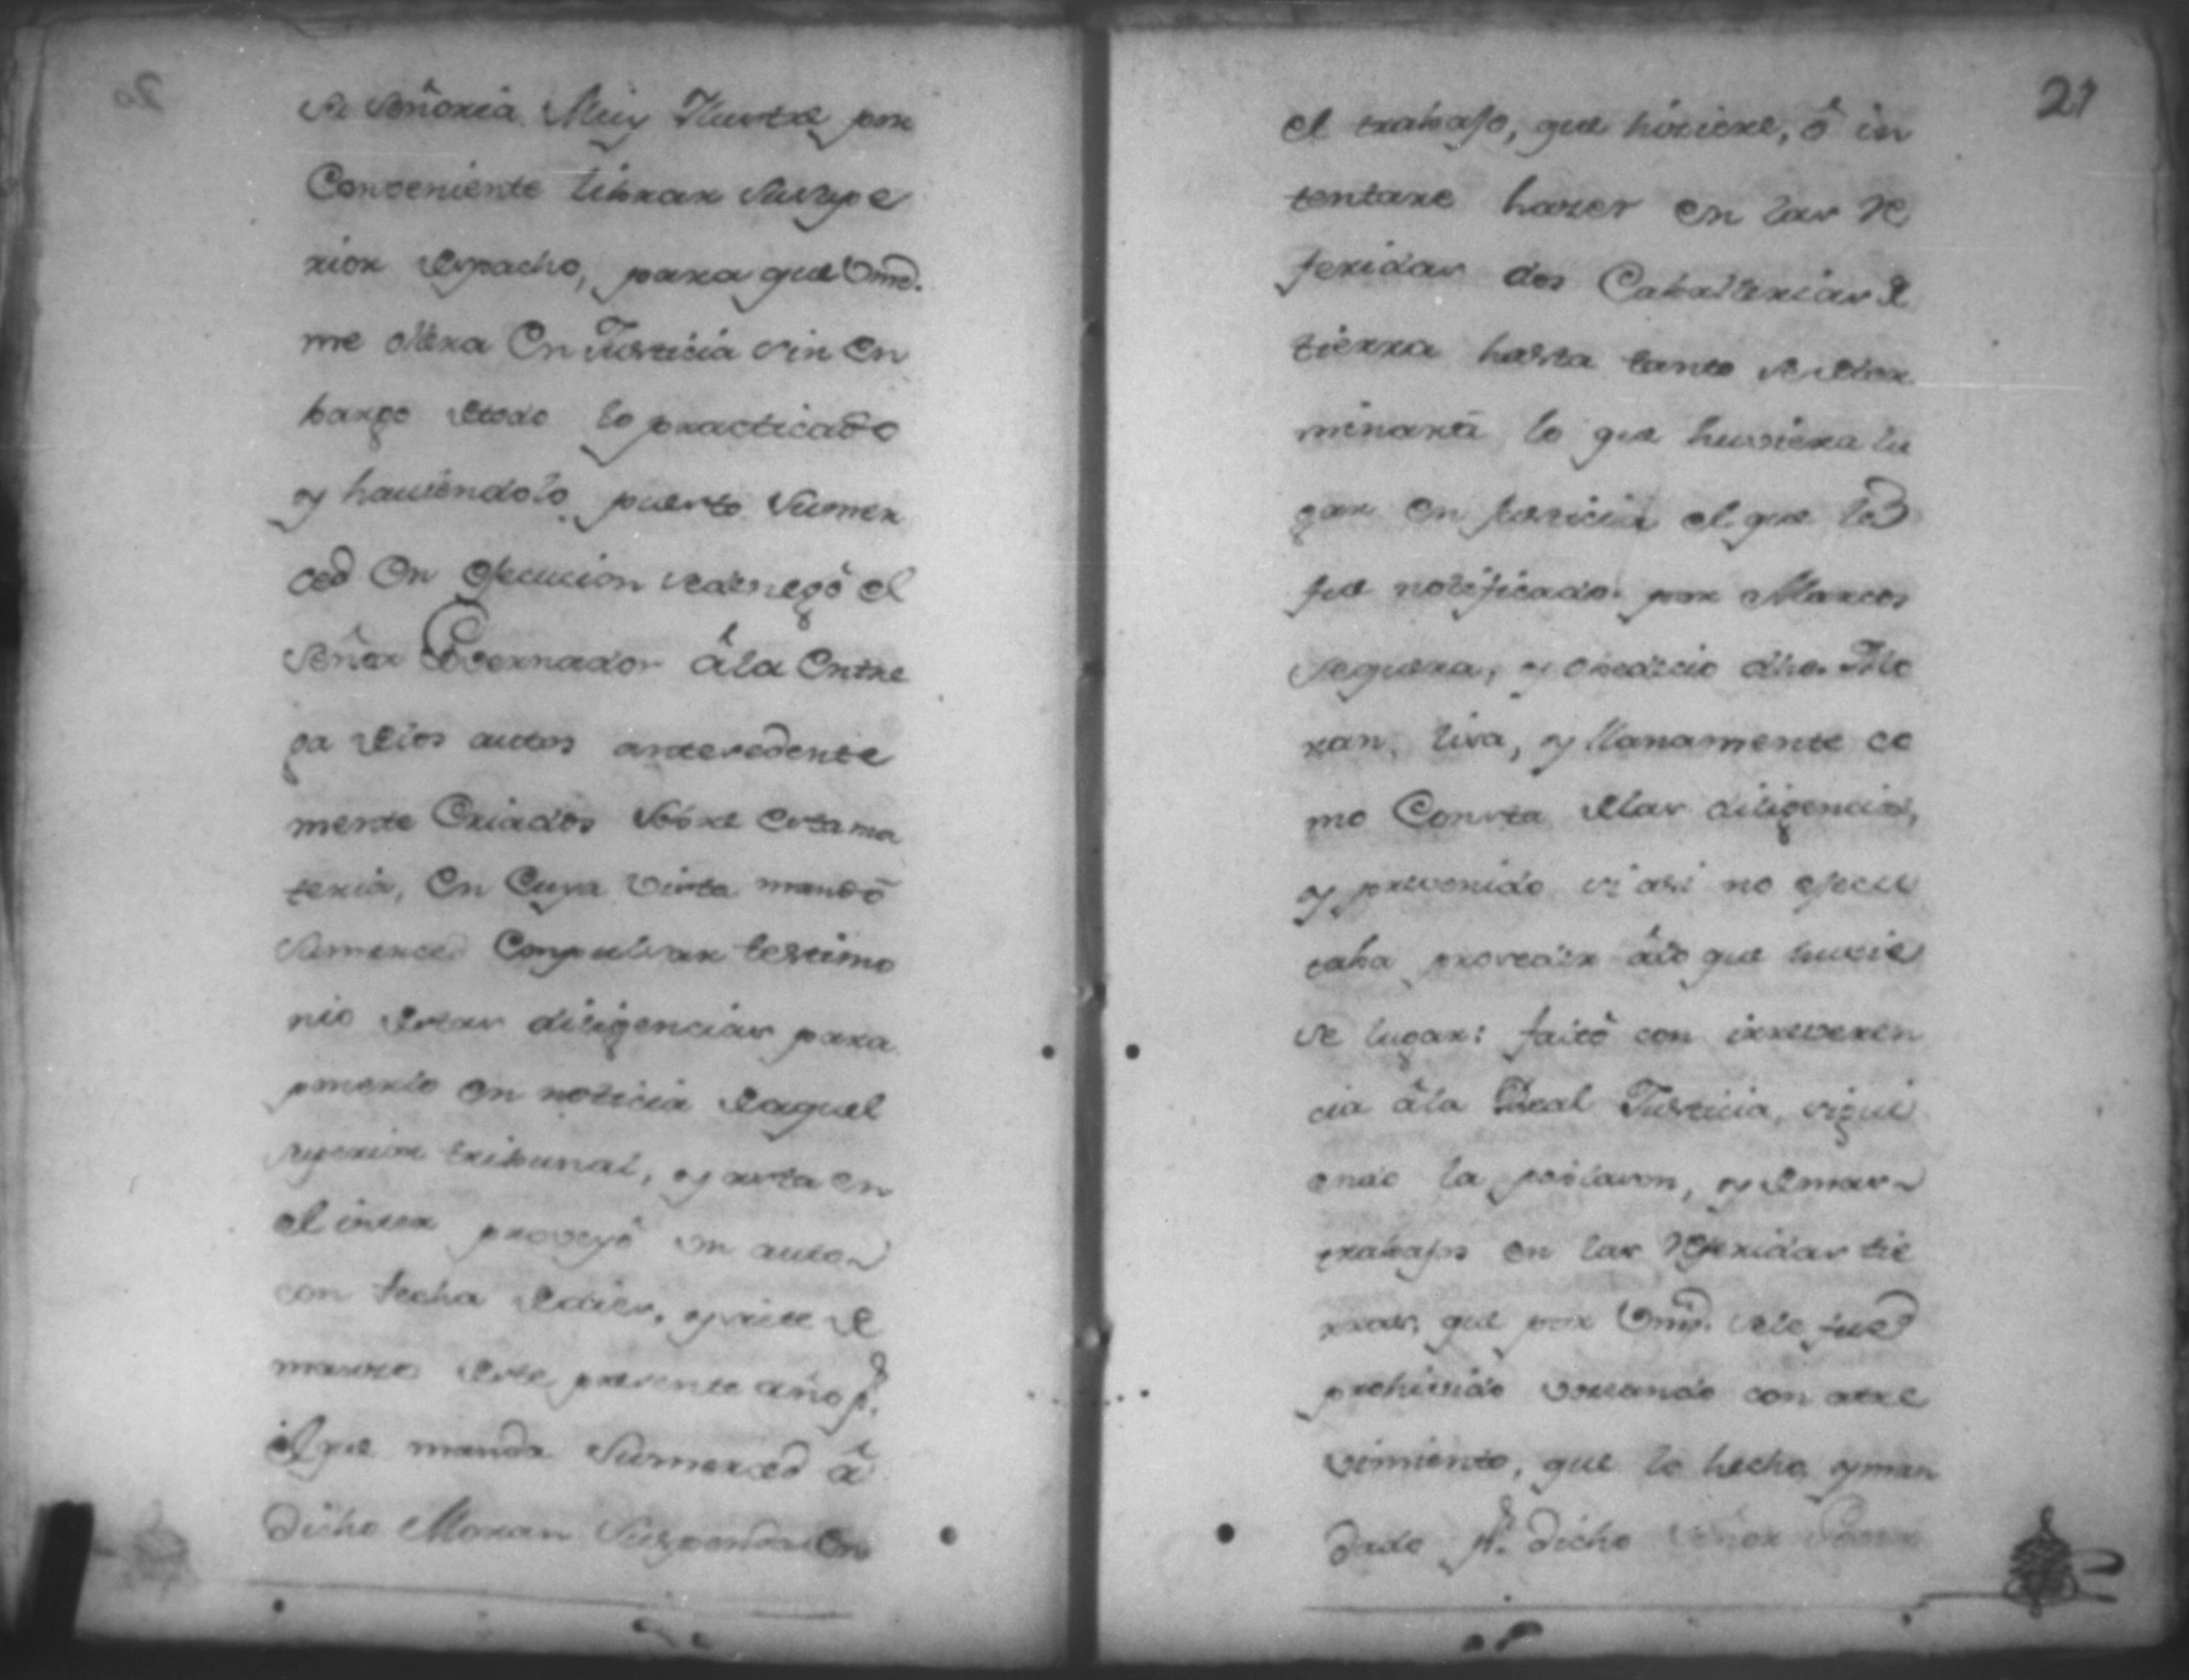 Su Señoria Muy Ylustre por
Conveniente librar Su supe
rior despacho, para que Vmd.
me oiera en Justicia sin en
bargo de todo lo practicado
y haviendolo puesto Sumer
ced en ejecucion se denegó el
Señor Governador â la entre
ga de los autos antecedente
mente Criados Sobre esta ma
teria, en Cuya vista mandó
Sumerced Conpulsar testimo
nio de estas diligencias para
ponerlo en noticia de aquel
superior tribunal, y asta en
el inter proveyó un auto
con fecha de dies, y siete de
marzo de este presente año p.r
el que manda Sumerced â
dicho Moran Suspenda en
21
el trabajo, que hiziere, ó in
tentare hazer en las re
feridas dos Caballerias de
tierra hasta tanto se deter
minara lo que huviera lu
gar en justicia el que le
fue notificado por Marcos
Seguera, y obedecio dho. Mo
ran, lisa, y llanamente co
mo Consta de las diligencias,
y prevenido si asi no ejecu
taba proceder â lo que huvie
se lugar: faltó con irreveren
cia â la Real Justicia, sigui
endo la poblason, y demas
trabajos en las referidas tie
rras, que por Vmd. se le fue
prohivido voseando con atre
vimiento, que lo hecho, y man
dado p.r dicho Señor